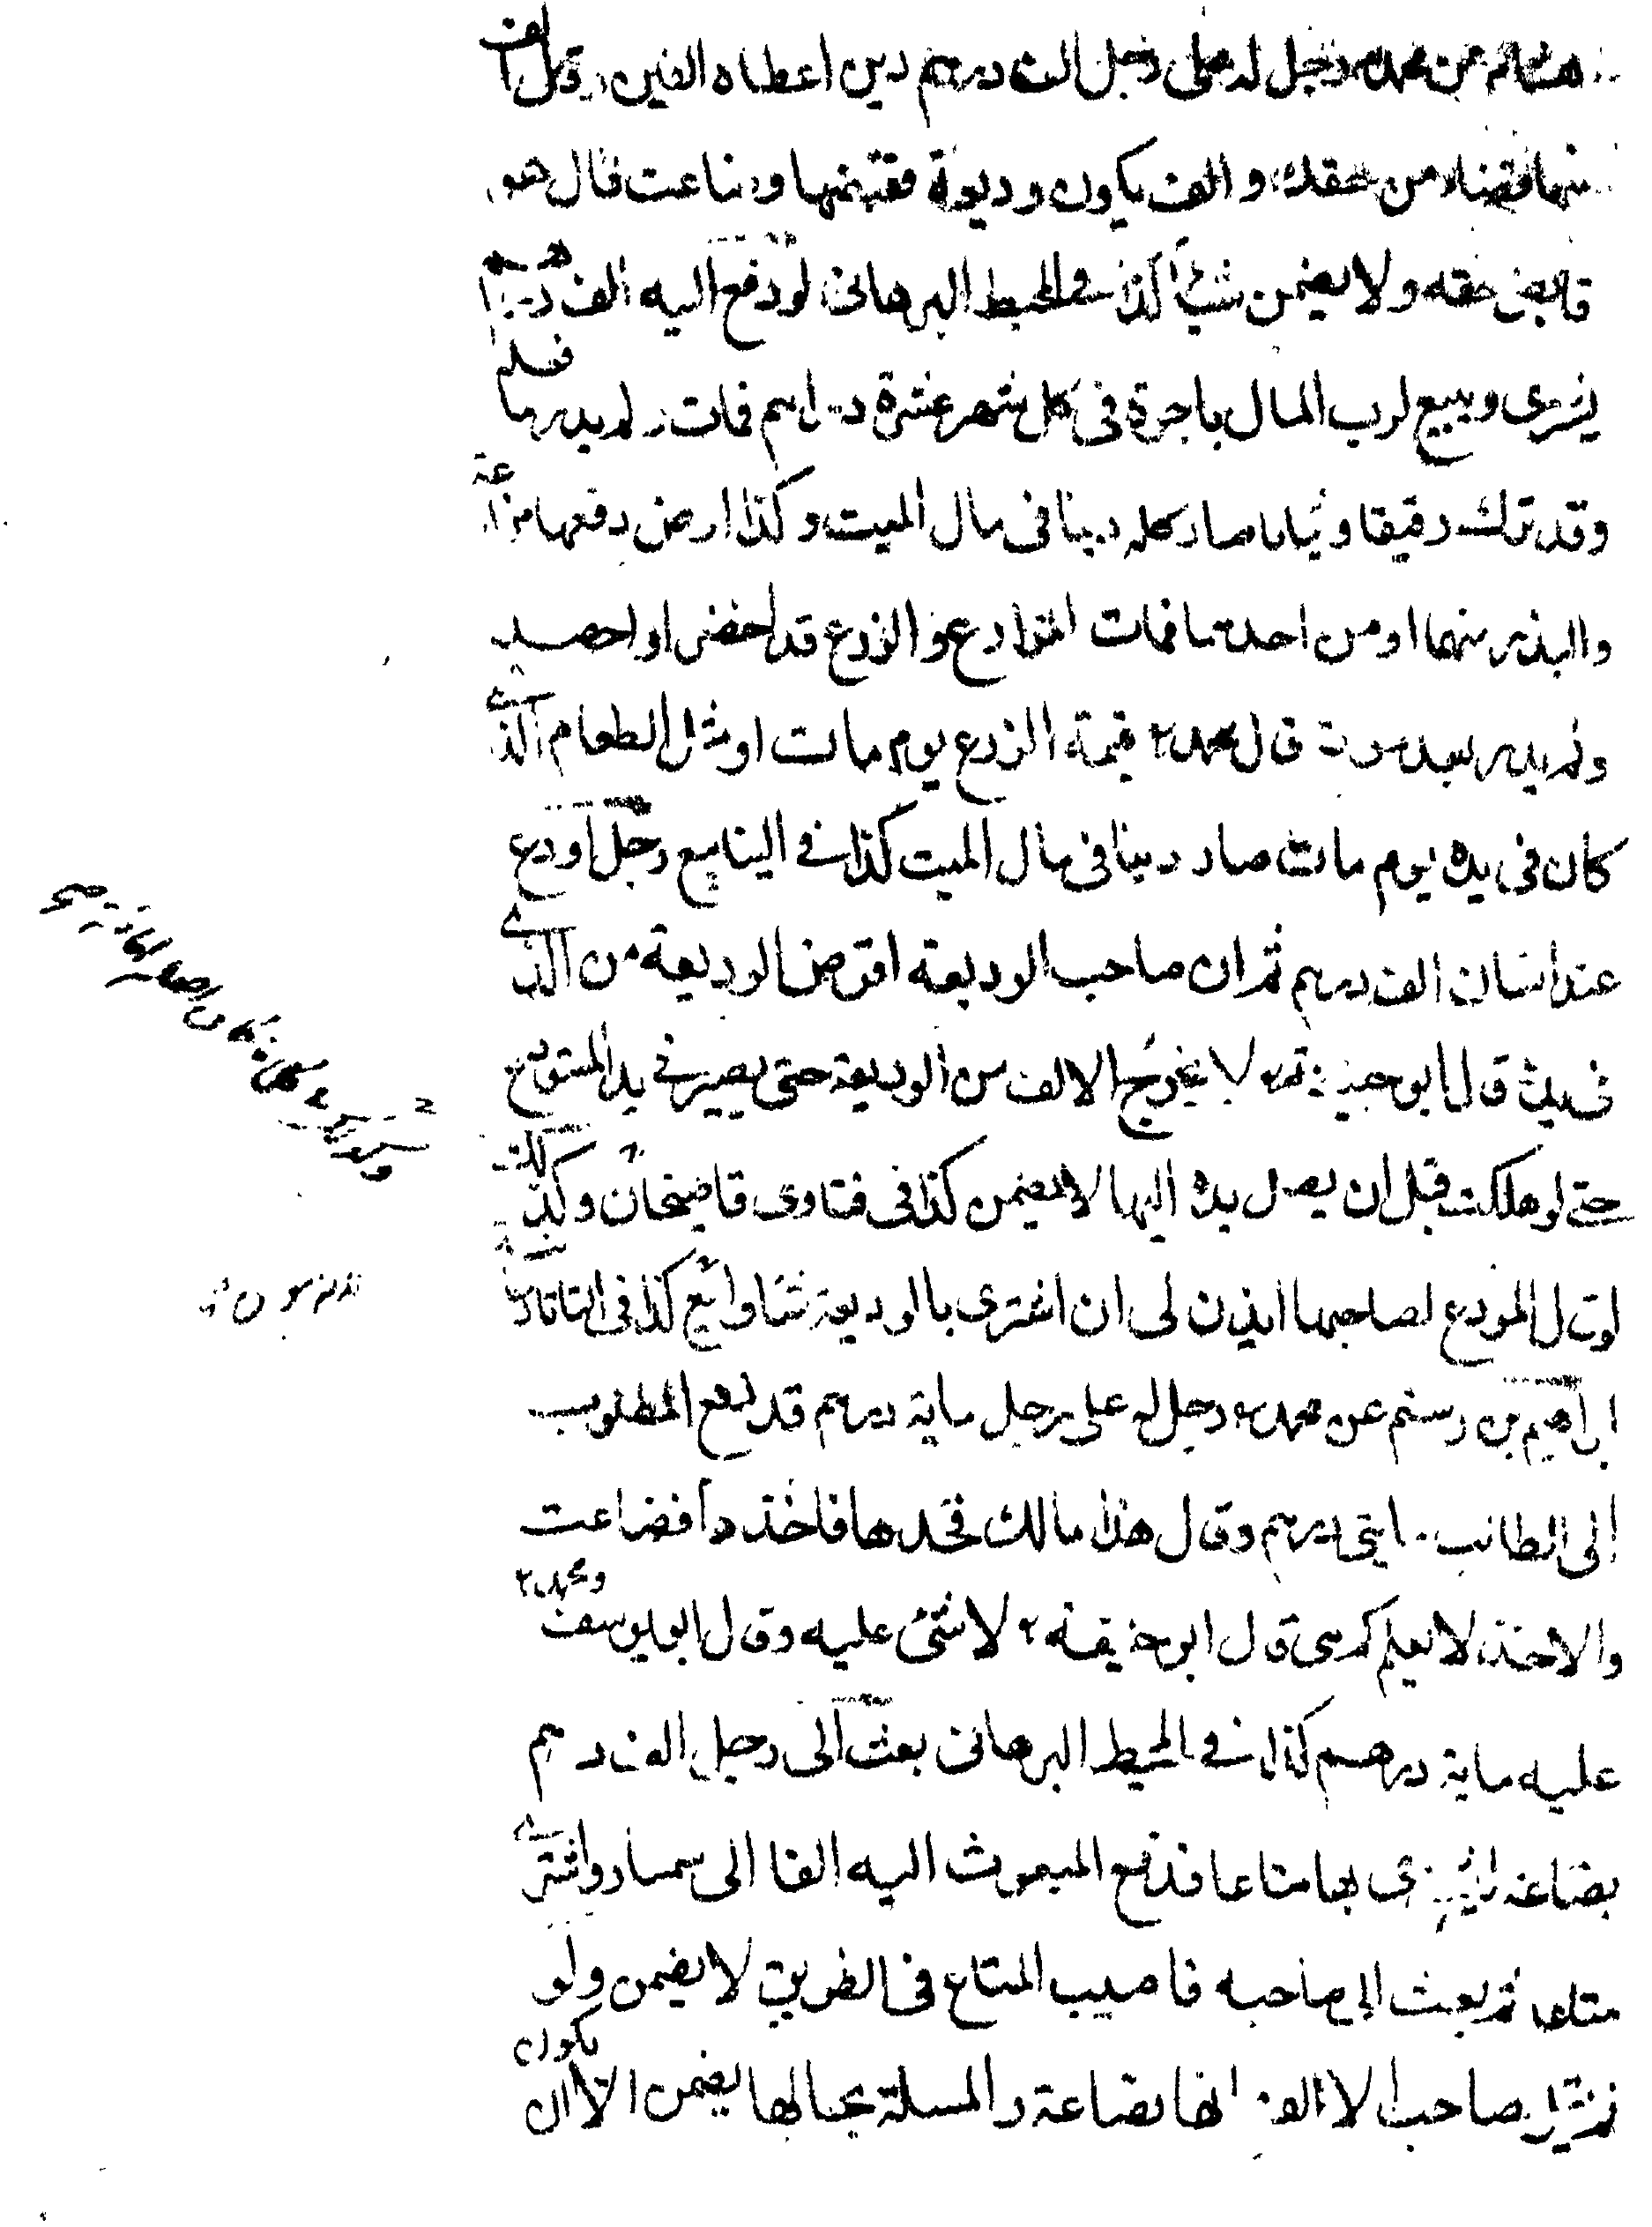 هشام عن محمد رجل له على رجل الف درهم دين اعطاه الفين وقال الف
منها قضاء من حقك والف يكون وديعة فقبضها وضاعت قال هو
قابض حقه ولا يضمن شيئا كذا في المحيط البرهاني لو دفع اليه الف درهم
يشترى ويبيع لرب المال باجرة فى كل شهر عشرة دراهم فمات ولم يدر ما فعلم
وقد ترك رقيقا وثيابا صار كله دينا فى مال الميت وكذا ارض دفعها مزارعة
والبذر منهما او من احدهما فمات المزارع والزرع قد احضر او احصد
ولم يدر بعد موته قال محمد قيمة الزرع يوم مات او مثل الطعام الذى
كان فى يده يوم مات صار دينا فى مال الميت كذا في الينابيع رجل اودع
عند انسان الف درهم ثم ان صاحب الوديعة اقرض الوديعة من الذى
فى يده قال ابو حنيفة لا يخرج الالف من الوديعة حتى يصير في يد المستودع
حتى لو هلكت قبل ان يصل يده اليها لا يضمن كذا فى فتاوى قاضيخان وكذلك
لو قال المودع لصاحبها ايذن لى ان اشترى بالوديعة شيئا وابيع كذا فى التاتار
ابراهيم بن رستم عن محمد رجل له على رجل ماية درهم قد دفع المطلوب
الى الطالب مايتى درهم وقال هذا مالك فخدها فاخذها فضاعت
والاخذ لا يعلم كم هى قال ابو حنيفة لا شئ عليه وقال ابو يوسف ومحمد
عليه ماية درهم كذا في المحيط البرهانى بعث الى رجل الف درهم
بضاعة ليشترى بها متاعا فدفع المبعوث اليه الفا الى سمسار واشترى
متاعا ثم بعث الى صاحبه فاصيب المتاع فى الطريق لا يضمن ولو
لم يقل صاحب الالف انها بضاعة والمسلة بحالها يضمن الا ان يكون